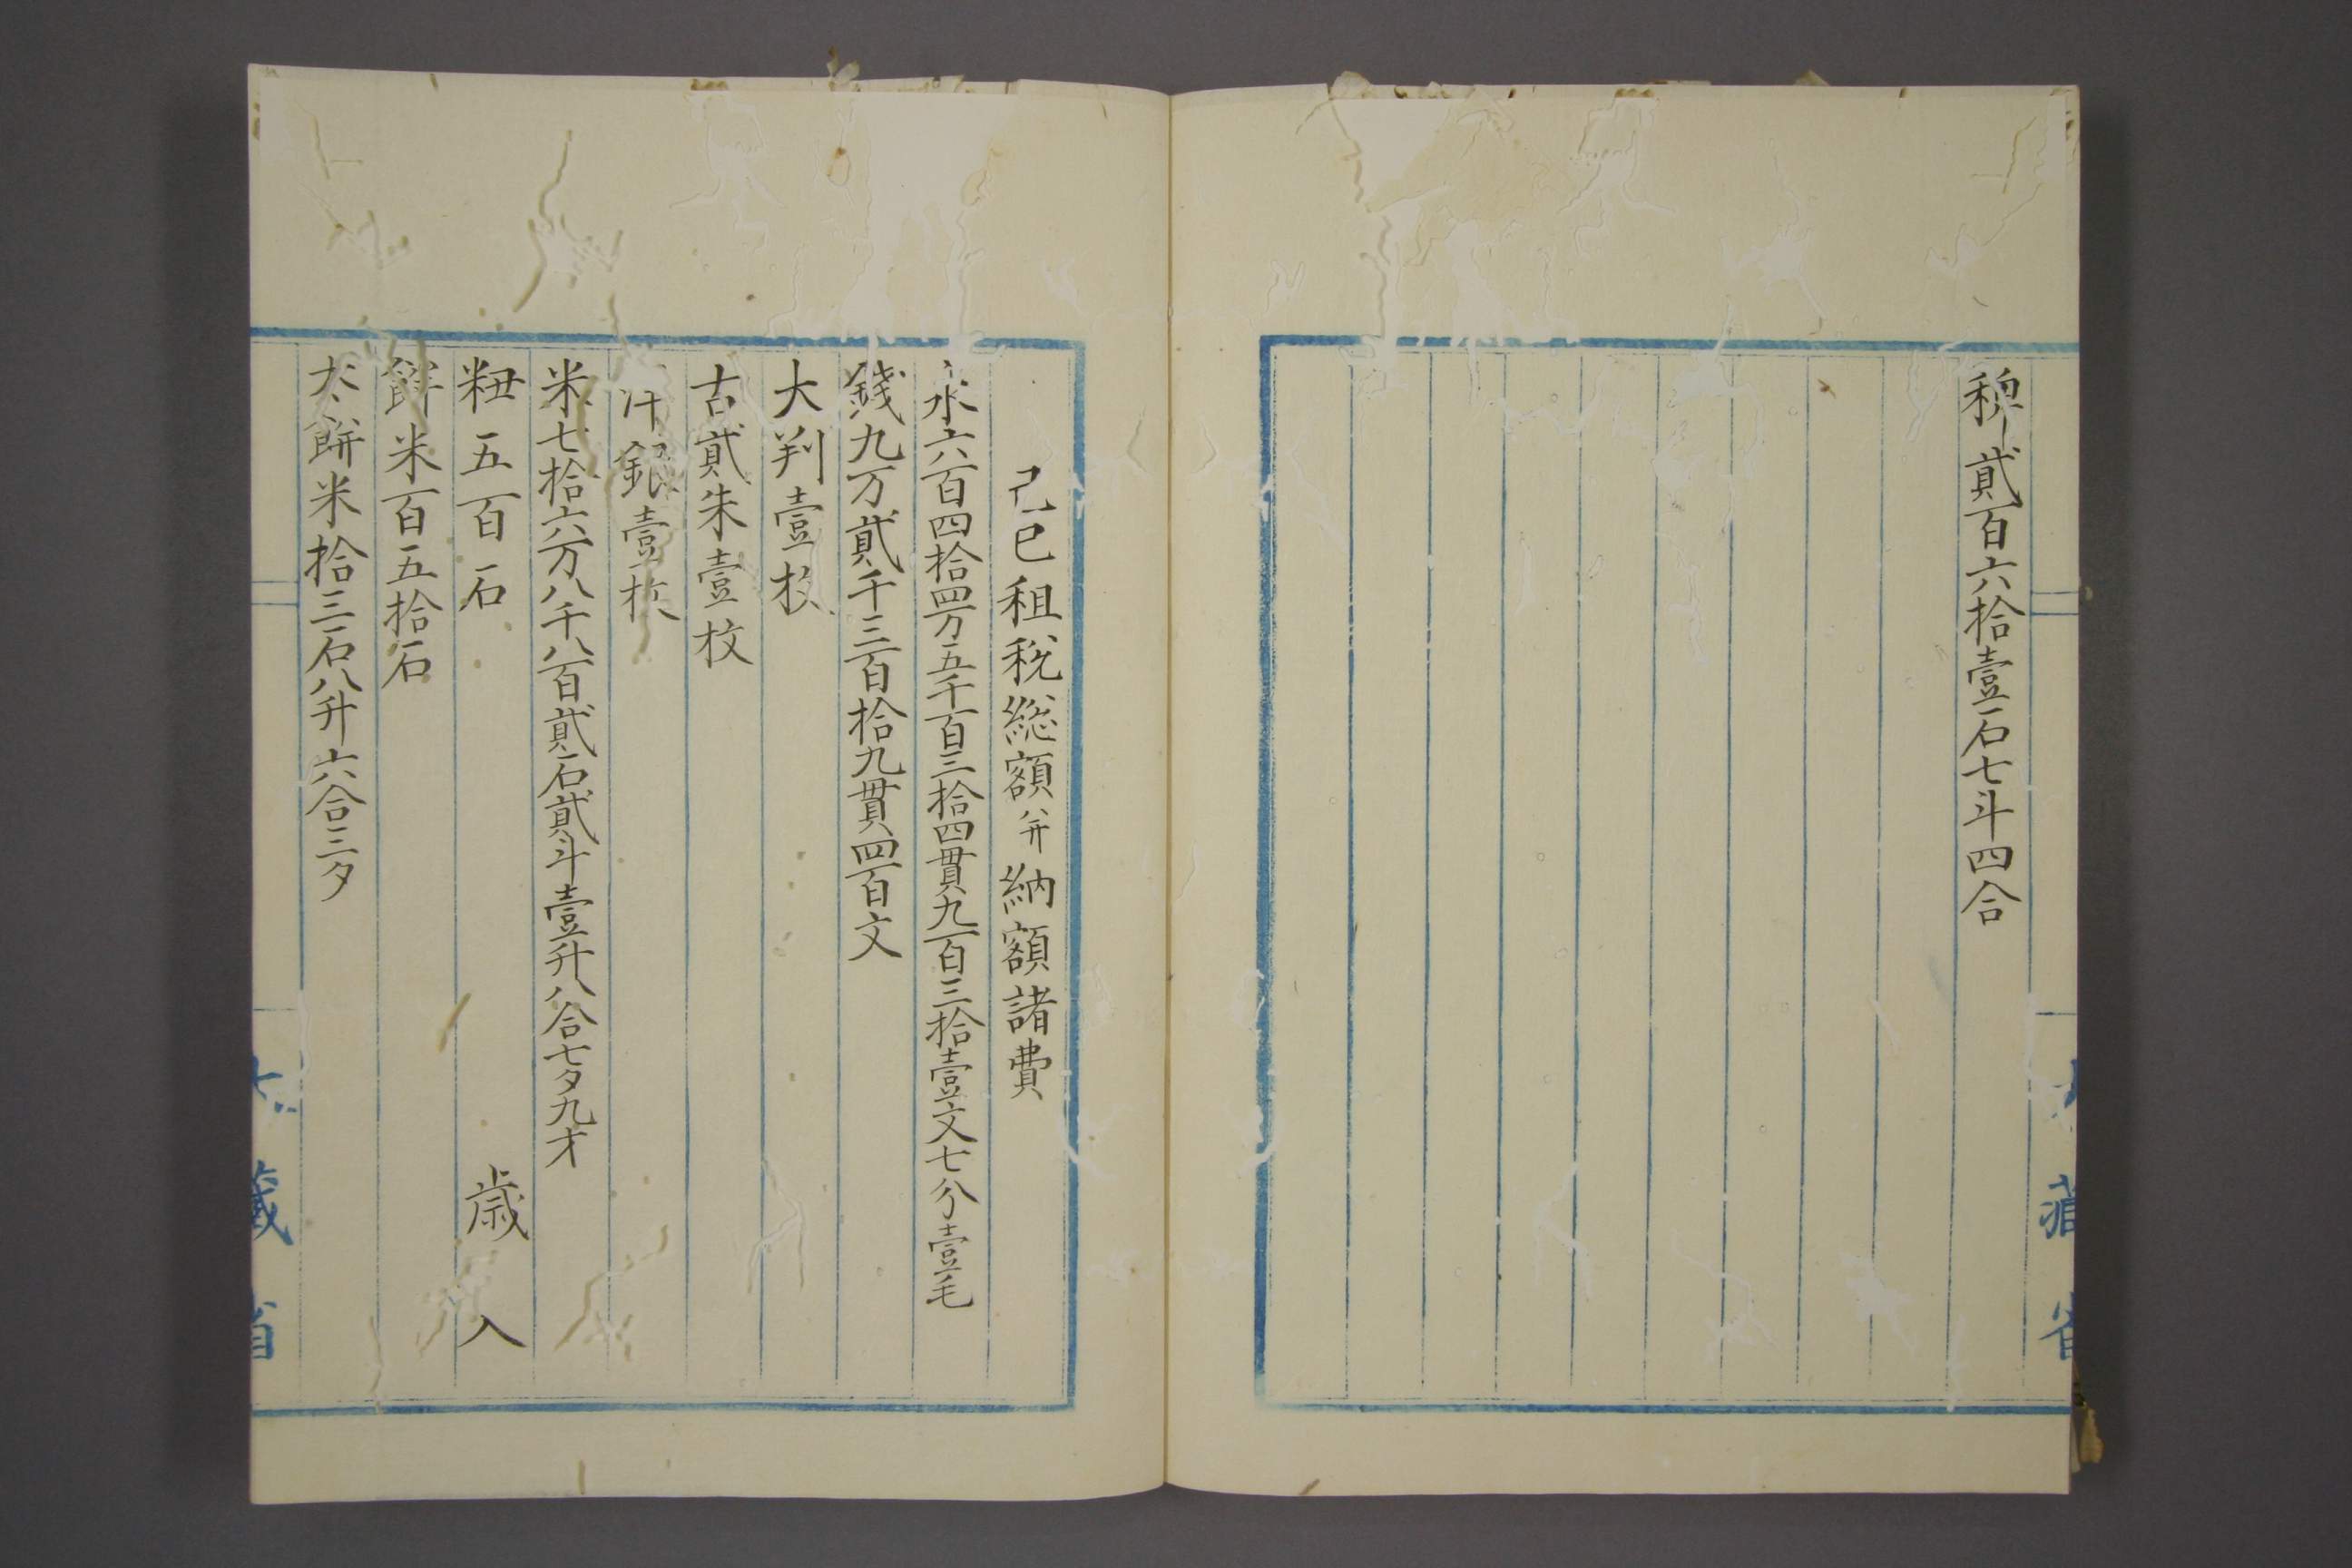 稗貳百六拾壹石七斗四合
大藏省
己巳租税総額并納額諸費
永六百四拾四万五千百三拾四貫九百三拾壹文七分壹毛
錢九万貳千三百拾九貫四百文
大判壹枚
古貳朱壹枚
銀壹枚
米七拾六万八千八百貳石貳斗壹升八合七夕九才
籾五百石
歳入
餅米百五拾石
餅米拾三石八升六合三夕
大藏省